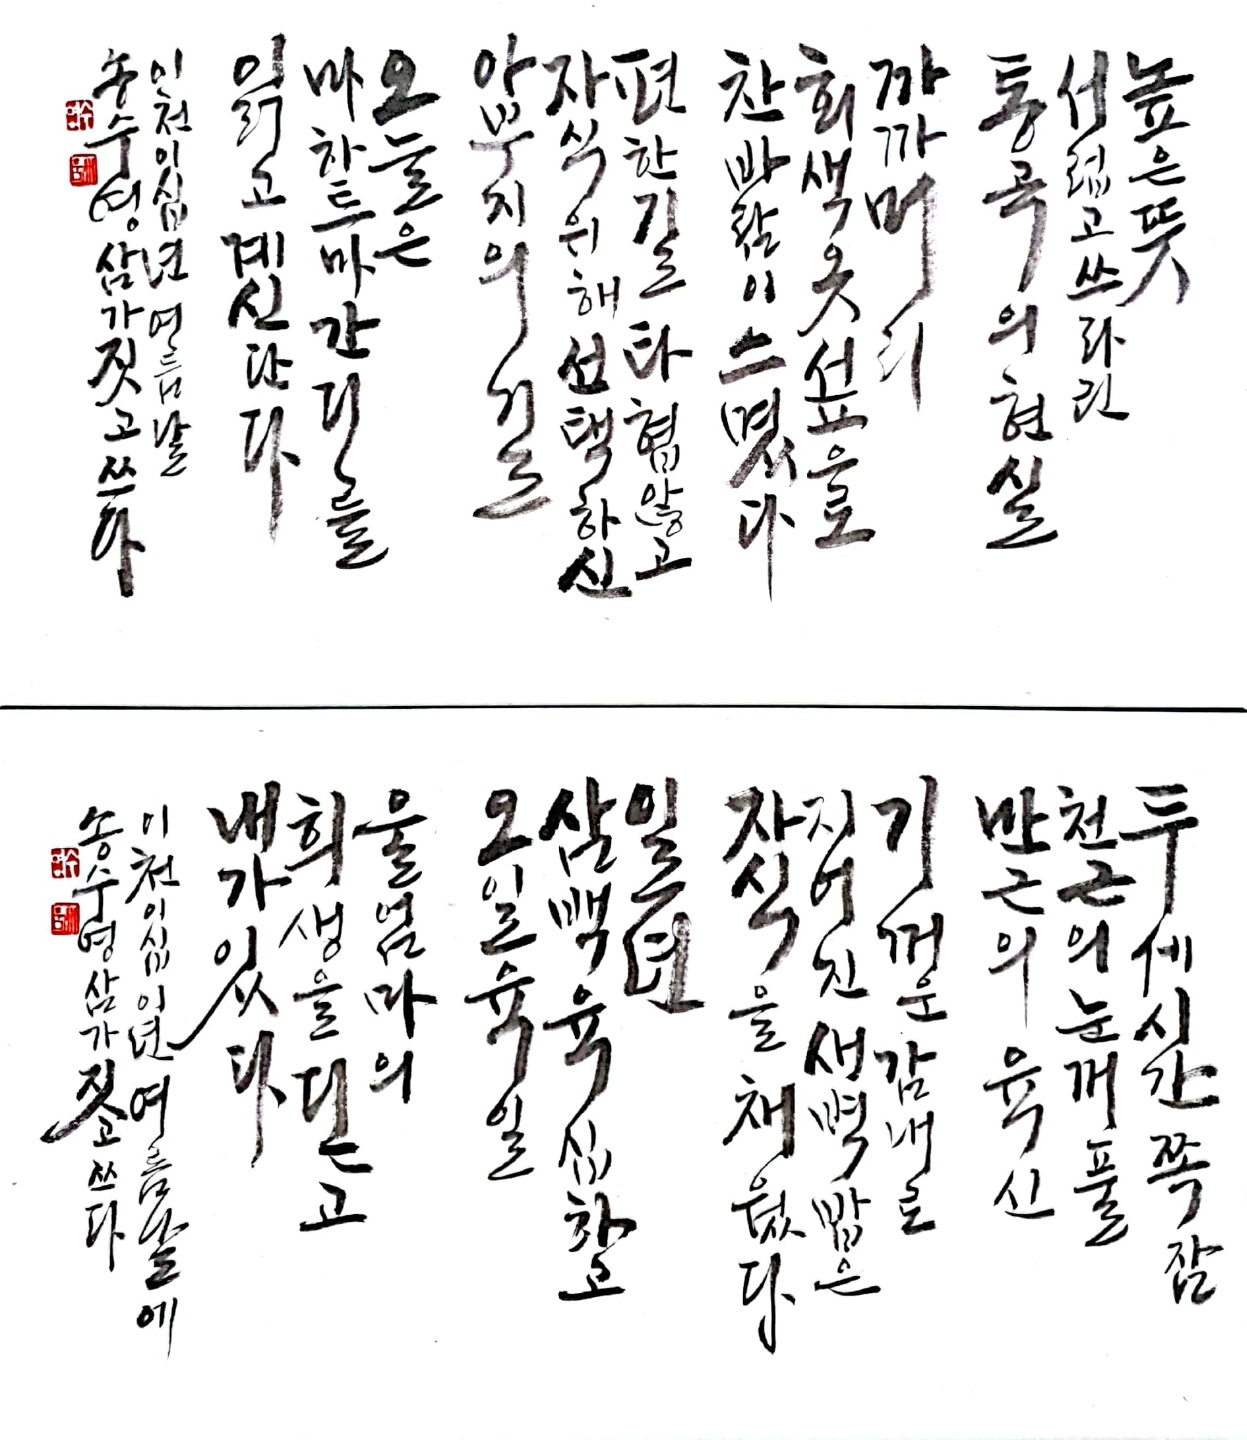 높은 뜻
서럽고 쓰라린
통곡의 현실
까까머리
회색옷 섶으로
찬 바람이 스몄다
편한 길 타협 않고
자식 위해 선택하신
아부지의 길
오늘은
마하트마 간디를
읽고 계신단다
이천이십년 여름날
송수영 삼가 짓고 쓰다
두 세시간 쪽잠
천근의 눈꺼풀
만근의 육신
기꺼운 감내로
지어진 새벽밥은
자식을 채웠다
일년
삼백육십하고
오일 육일
울엄마의
희생을 딛고
내가 있다
이천이십이년 여름날에
송수영 삼가 짓고 쓰다